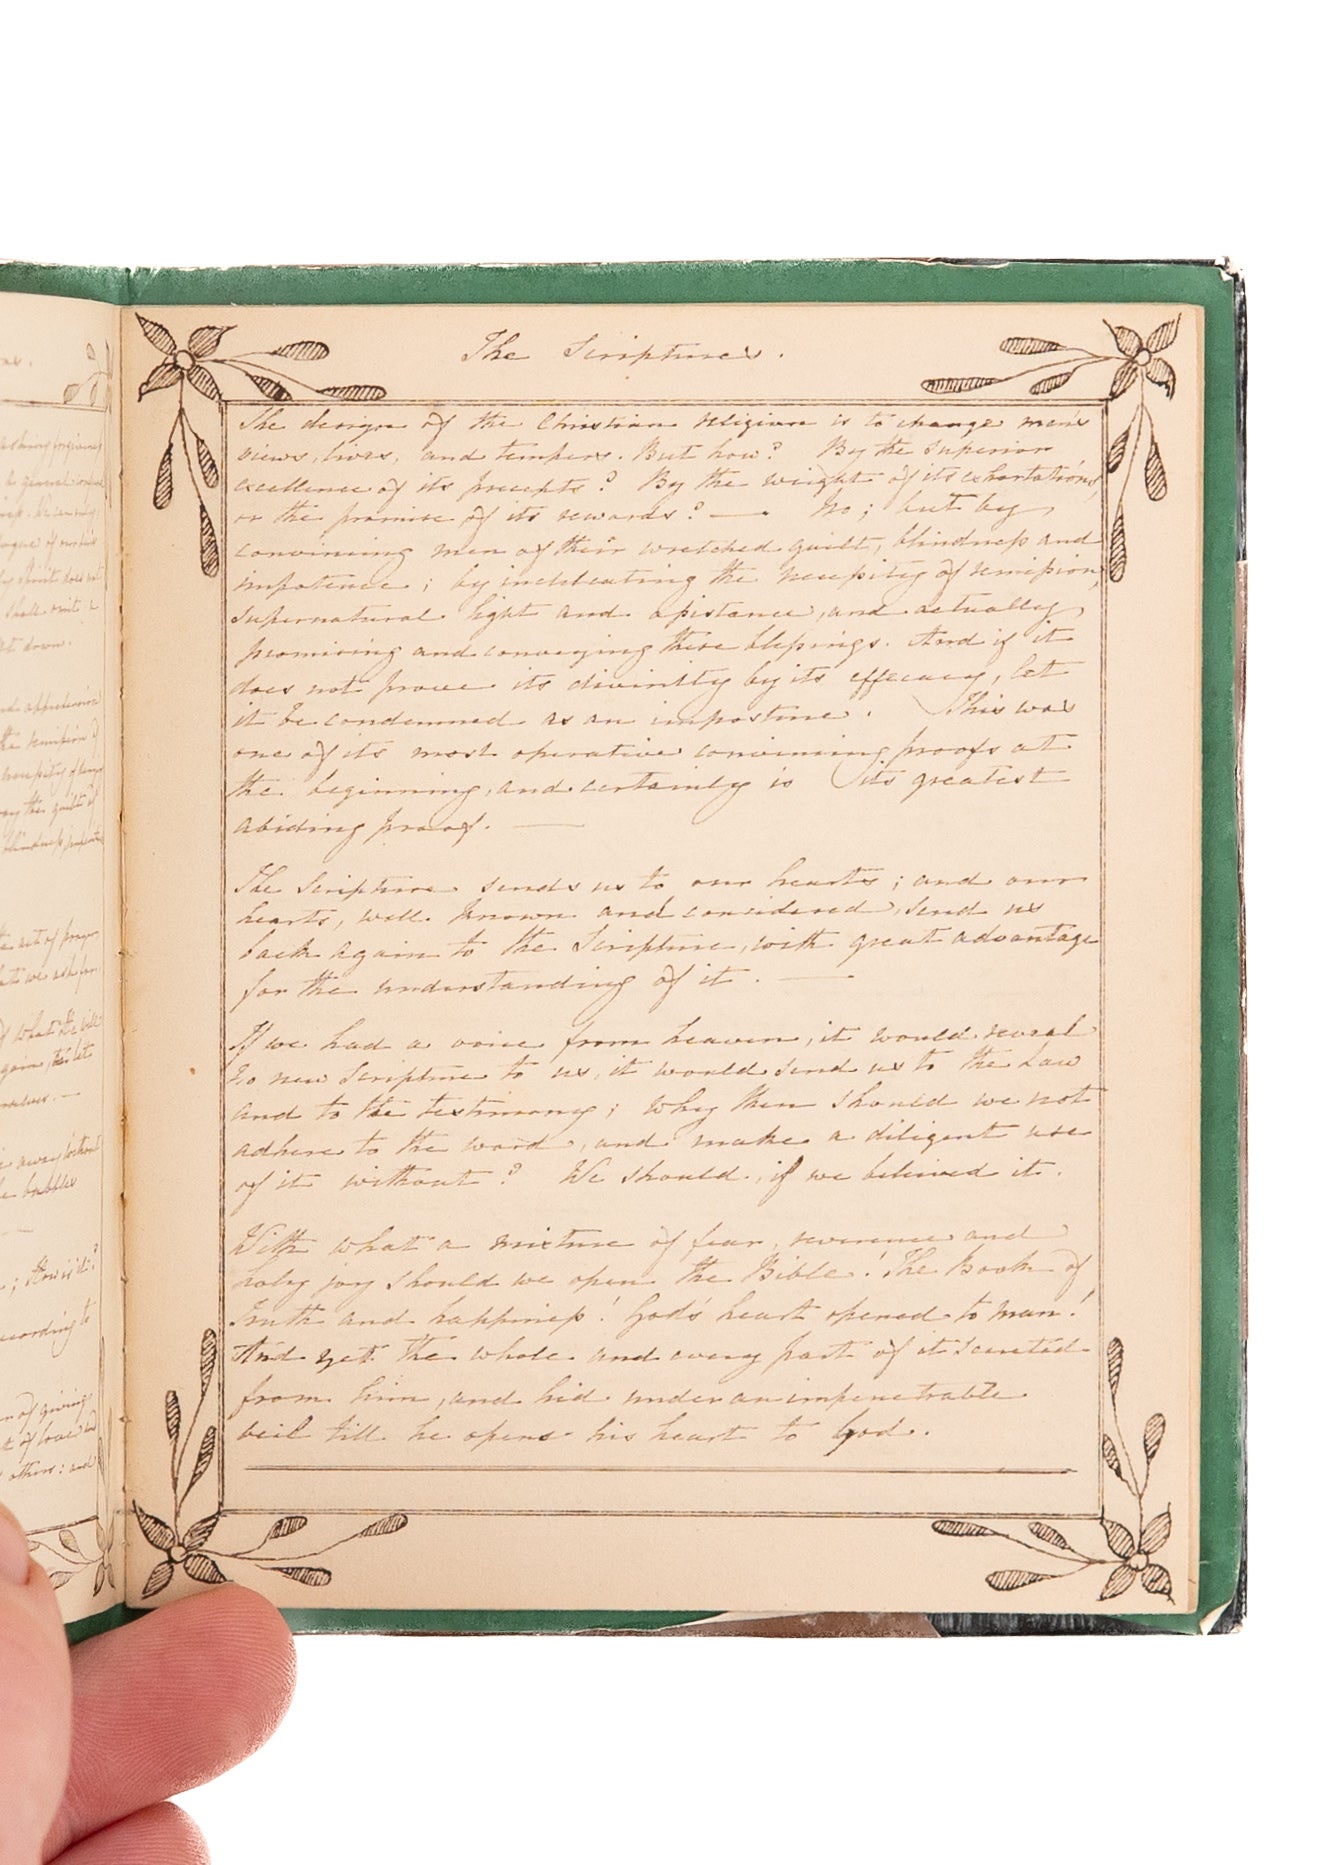 The Scriptures.
The design of the Christian religion is to change men's
views, lives, and tempers. But how? By the superior
excellence of its precepts? By the weight of its exhortations
or the promise of its rewards? — No; but by
convincing men of their wretched guilt, blindness and
impotence; by inculcating the necessity of remission,
supernatural light and assistance, and actually
promising and conveying these blessings. And if it
does not prove its divinity by its efficacy, let
it be condemned as an imposture. This was
one of its most operative convincing proofs at
the beginning, and certainly is its greatest
abiding proof. —
The Scripture sends us to our hearts; and our
hearts, well known and considered, send us
back again to the Scripture, with great advantage
for the understanding of it. —
If we had a voice from heaven, it would reveal
no new Scripture to us, it would send us to the Law
and to the testimony; Why then should we not
adhere to the word, and make a diligent use
of it without? We should, if we believed it.
With what a mixture of fear, reverence and
holy joy should we open the Bible! The Book of
Truth and happiness! God's heart opened to man!
And yet the whole and every part of it secreted
from him, and hid under an impenetrable
veil till he opens his heart to God.
general
down.
apprehension
necessity of
the guilt of
blindness
act of prayer
we ask for
of what
again, let
away without
bubbles
; How is it?
according to
of giving
of love and
others: and